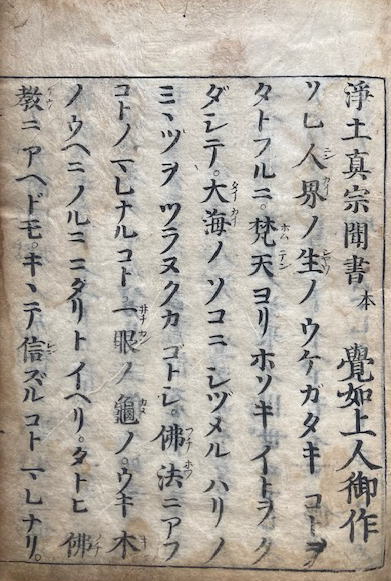 淨土真宗聞書本 覺如上人御作
ソレ人界ノ生ノウケガタキコトヲ
タトフルニ。梵天ヨリホソキイトヲク
ダシテ。大海ノソコニシヅメルハリノ
ミヽヅヲツラヌクカゴトシ。佛法ニアフ
コトノマレナルコト一眼ノ龜ノ。ウキ木
ノウヘニノルニニタリトイヘリ。タトヒ佛
教ニアヘドモ。キヽテ信ズルコトマレナリ。